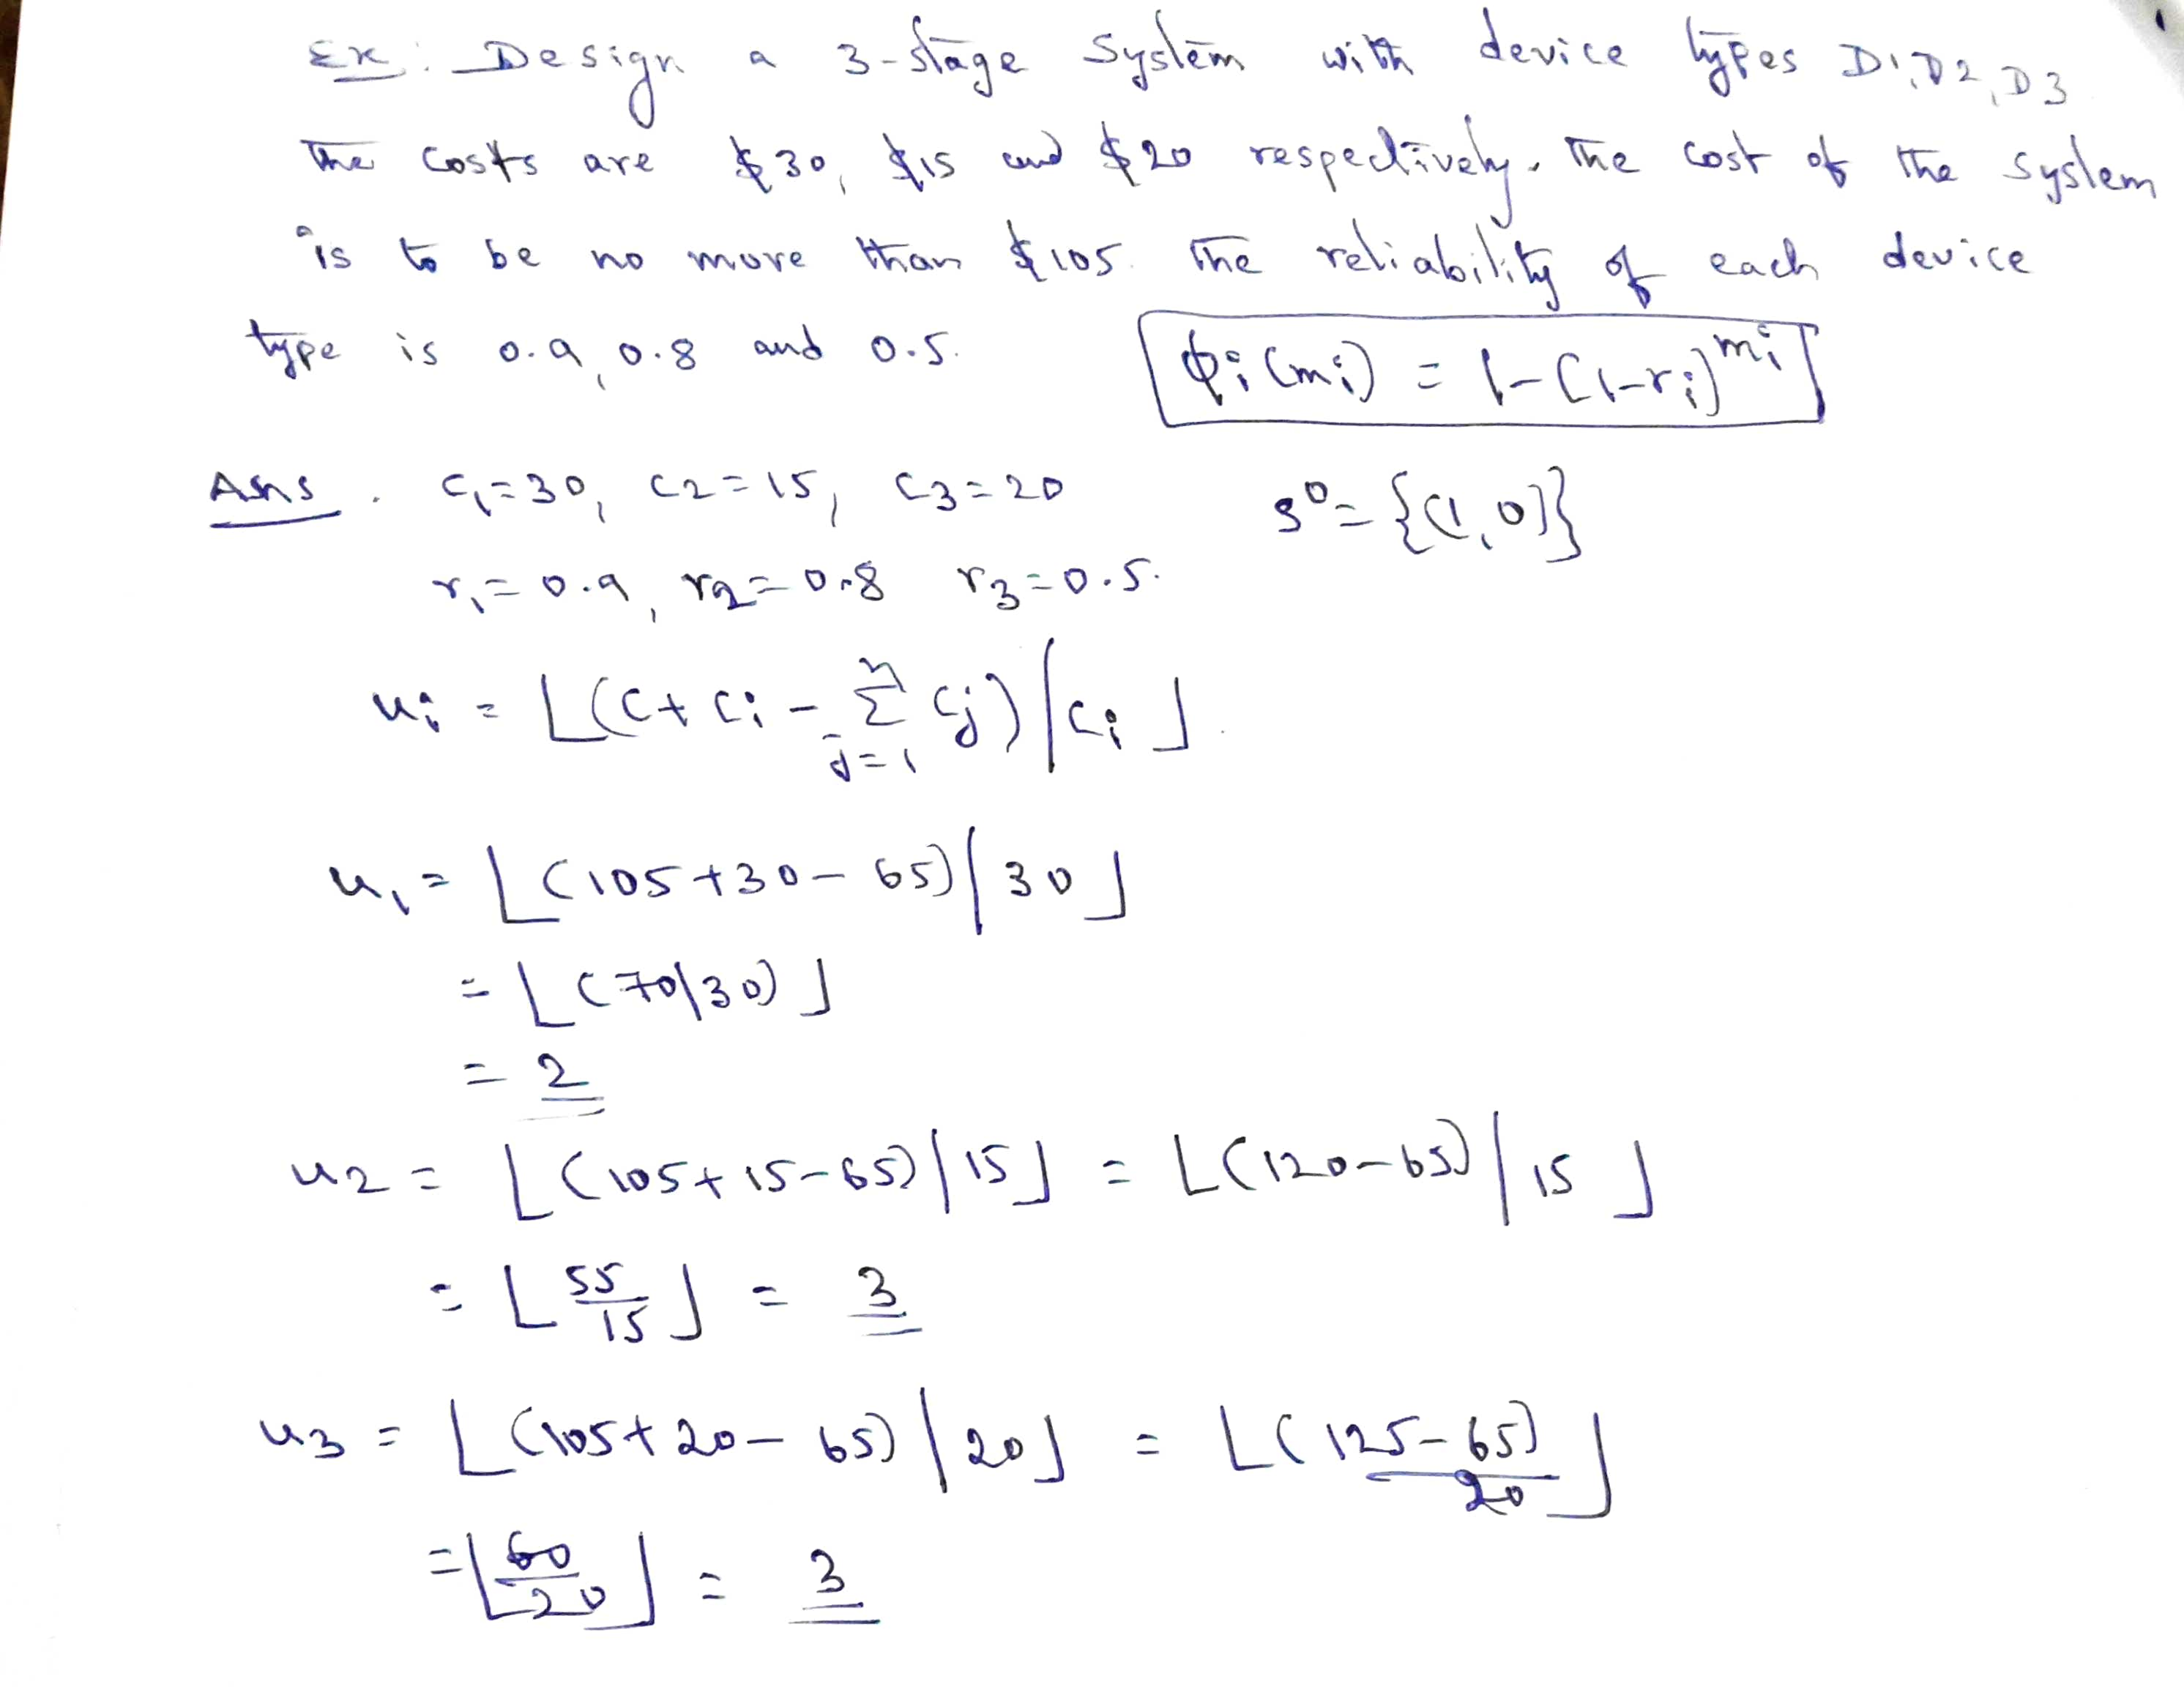 Ex: Design a 3-stage System with device types D1, D2, D3
The costs are $30, $15 and $20 respectively. The cost of the system
is to be no more than $105. The reliability of each device
type is 0.9, 0.8 and 0.5.
ϕi(mi) = 1-(1-ri)^mi
Ans. c1=30, c2=15, c3=20
S^0={(1,0)}
r1=0.9, r2=0.8 r3=0.5.
ui = ⌊(C+Ci - Σ_{j=1}^{n} Cj)/Ci⌋.
u1 = ⌊(105+30-65)/30⌋
= ⌊(70/30)⌋
= 2
u2 = ⌊(105+15-65)/15⌋ = ⌊(120-65)/15⌋
= ⌊55/15⌋ = 3
u3 = ⌊(105+20-65)/20⌋ = ⌊(125-65)/20⌋
= ⌊60/20⌋ = 3